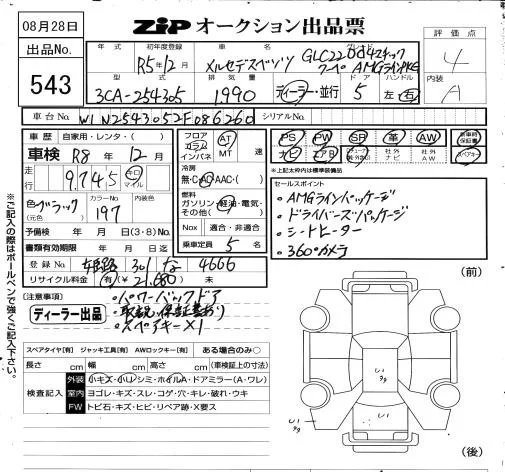 08月28日
ZIP オークション出品票
出品No.
543
年式
初年度登録
R5年12月
車名
メルセデスベンツ
グレード
GLC220d4マチック
クーペ AMGラインPKG
評価点
4
内装
A
型式
3CA-254305
排気量
1,990
ディーラー・並行
ドア
5
ハンドル
左・右
車台No.
W1N2543052F086260
シリアルNo.
車歴 自家用・レンタ・( )
車検 R8年 12月
走行 9,745 キロ マイル
色 ブラック
(元色)
カラーNo.
197
内装色
予備検 年 月 日(3・8)No.
書類有効期限 年 月 日迄
登録No. 姫路 301 な 4666
リサイクル料金 有(¥ 21,680 ) 未
フロア
コラム
インパネ
AT
MT
速
冷房
無・C・AC・AAC・( )
燃料
ガソリン・軽油・電気・
その他( )
Nox 適合・非適合
乗車定員 5 名
PS PW SR 革 AW
ナビ エアB
社外ナビ
社外AW
スペアキー
★上記太枠内は標準装備品
セールスポイント
・AMGラインパッケージ
・ドライバーズパッケージ
・シートヒーター
・360°カメラ
(注意事項)
・パワーバックドア
・取説、保証書あり
・スペアキー×1
ディーラー出品
※ご記入の際はボールペンで強くご記入下さい。
スペアタイヤ[有] ジャッキ工具[有] AWロックキー[有] ある場合のみ○
長さ cm 幅 cm 高さ cm (車検証上の寸法)
検査記入
外装 小キズ・小リシミ・ホイルA・ドアミラー(A・ワレ)
室内 ヨゴレ・キズ・スレ・コゲ・穴・キレ・破れ・ウキ
FW トビ石・キズ・ヒビ・リペア跡・X要ス
(前)
(後)